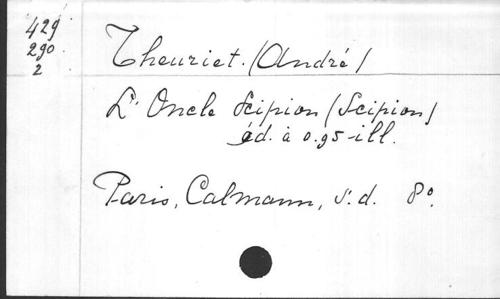 429
290
2
Theuriet. (André)
L'Oncle Scipion (Scipion)
éd. à 0.95-ill.
Paris, Calmann, s.d. 8°.